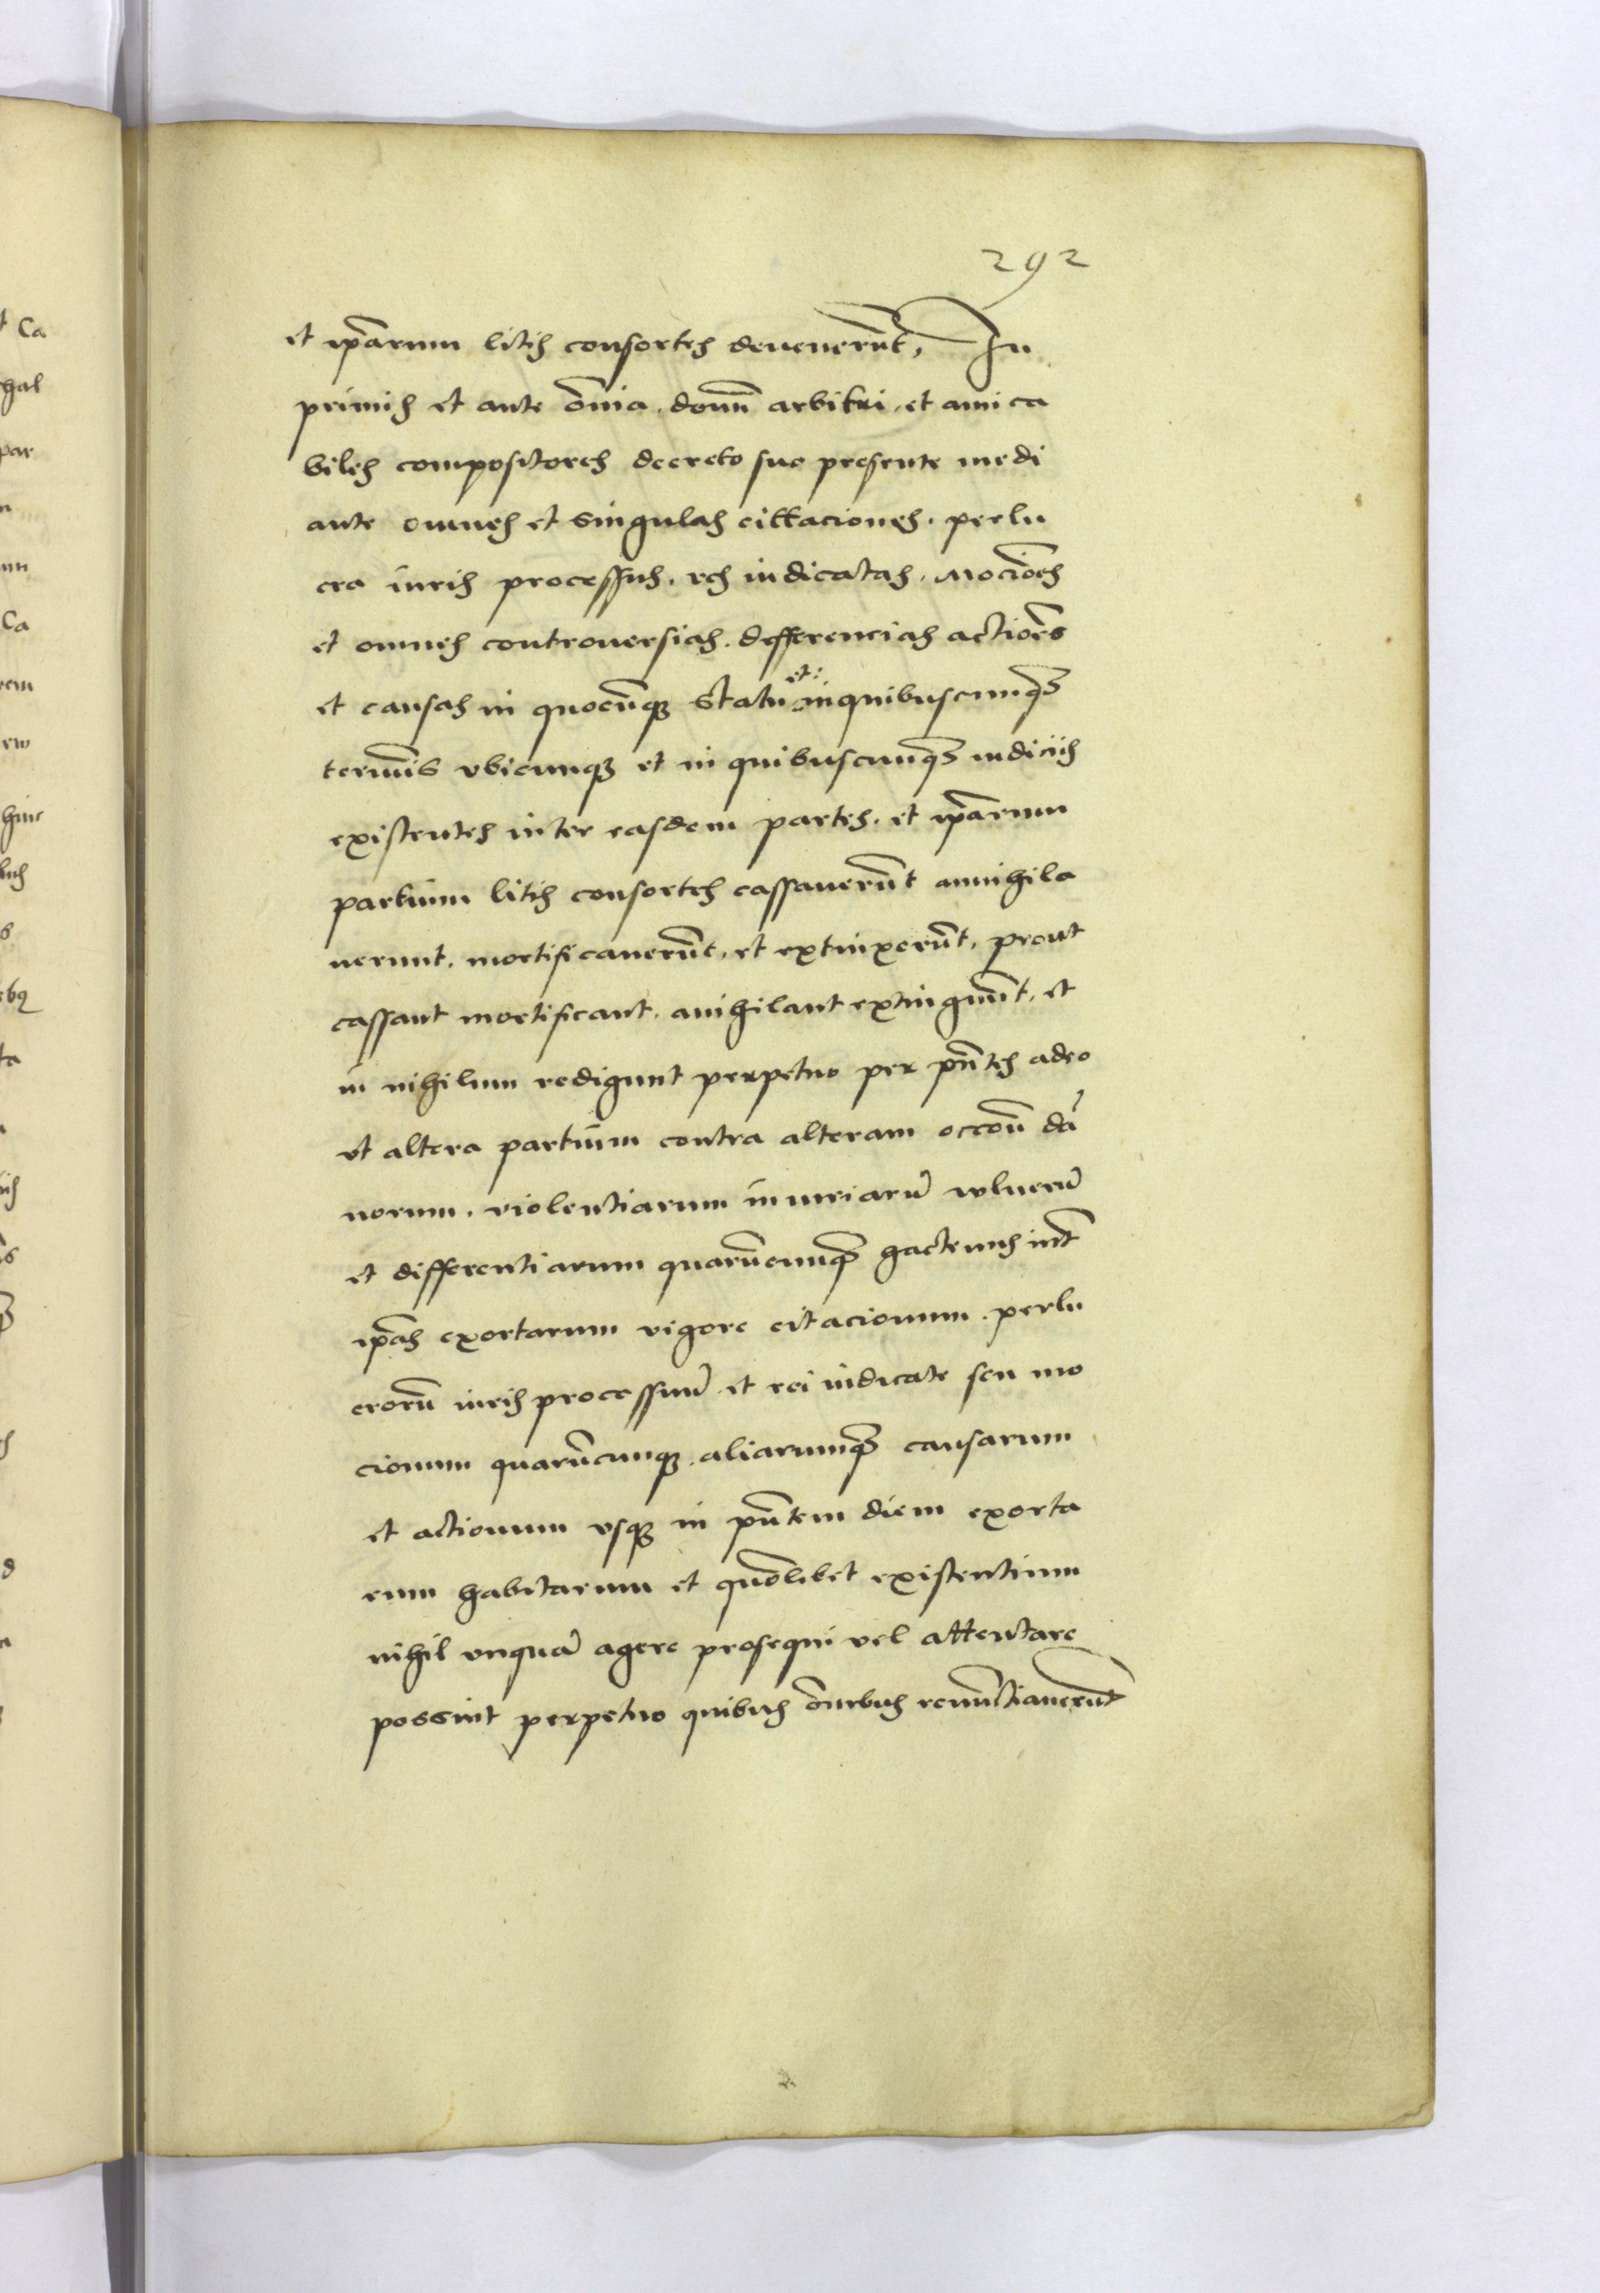 292
et ip̄arum litis consortes deuenerūt, In
primis et ante ōnia. domī arbitri. et amica
biles compositores decreto suo presente medi
ante omnes et singulas cittaciones. perlu
cra iuris processus. res iudicatas. Mocīoes
et omnes controuersias. differencias actiōes
et causas in quocūq; statu et in quibuscumq̄
termīs vbicunq; et in quibuscunq̄ iudiciis
existentes inter easdem partes. et ip̄arum
partium litis consortes cassauerūt annihila
uerunt. mortificauerūt. et extinxerūt. prout
cassant mortificant. anihilant extingūūt. et
in nihilum redigunt perpetuo per pn̄tes adeo
vt altera partium contra alteram occōn̄ dā
norum. violentiarum iniuriarū wlnerū
et differentiarum quarūcunq̄ hactenus int̄
ip̄as exortarum vigore citacionum. perlu
crorū iuris processuū et rei iudicate seu mo
cionum quarūcunq; aliarumq̄ causarum
et actionum vsq; in pn̄tem diem exorta
rum habitarum et quōlibet existentium
nihil vnquā agere prosequi vel attentare
possint perpetuo quibus ōnibus renūctiauerūt